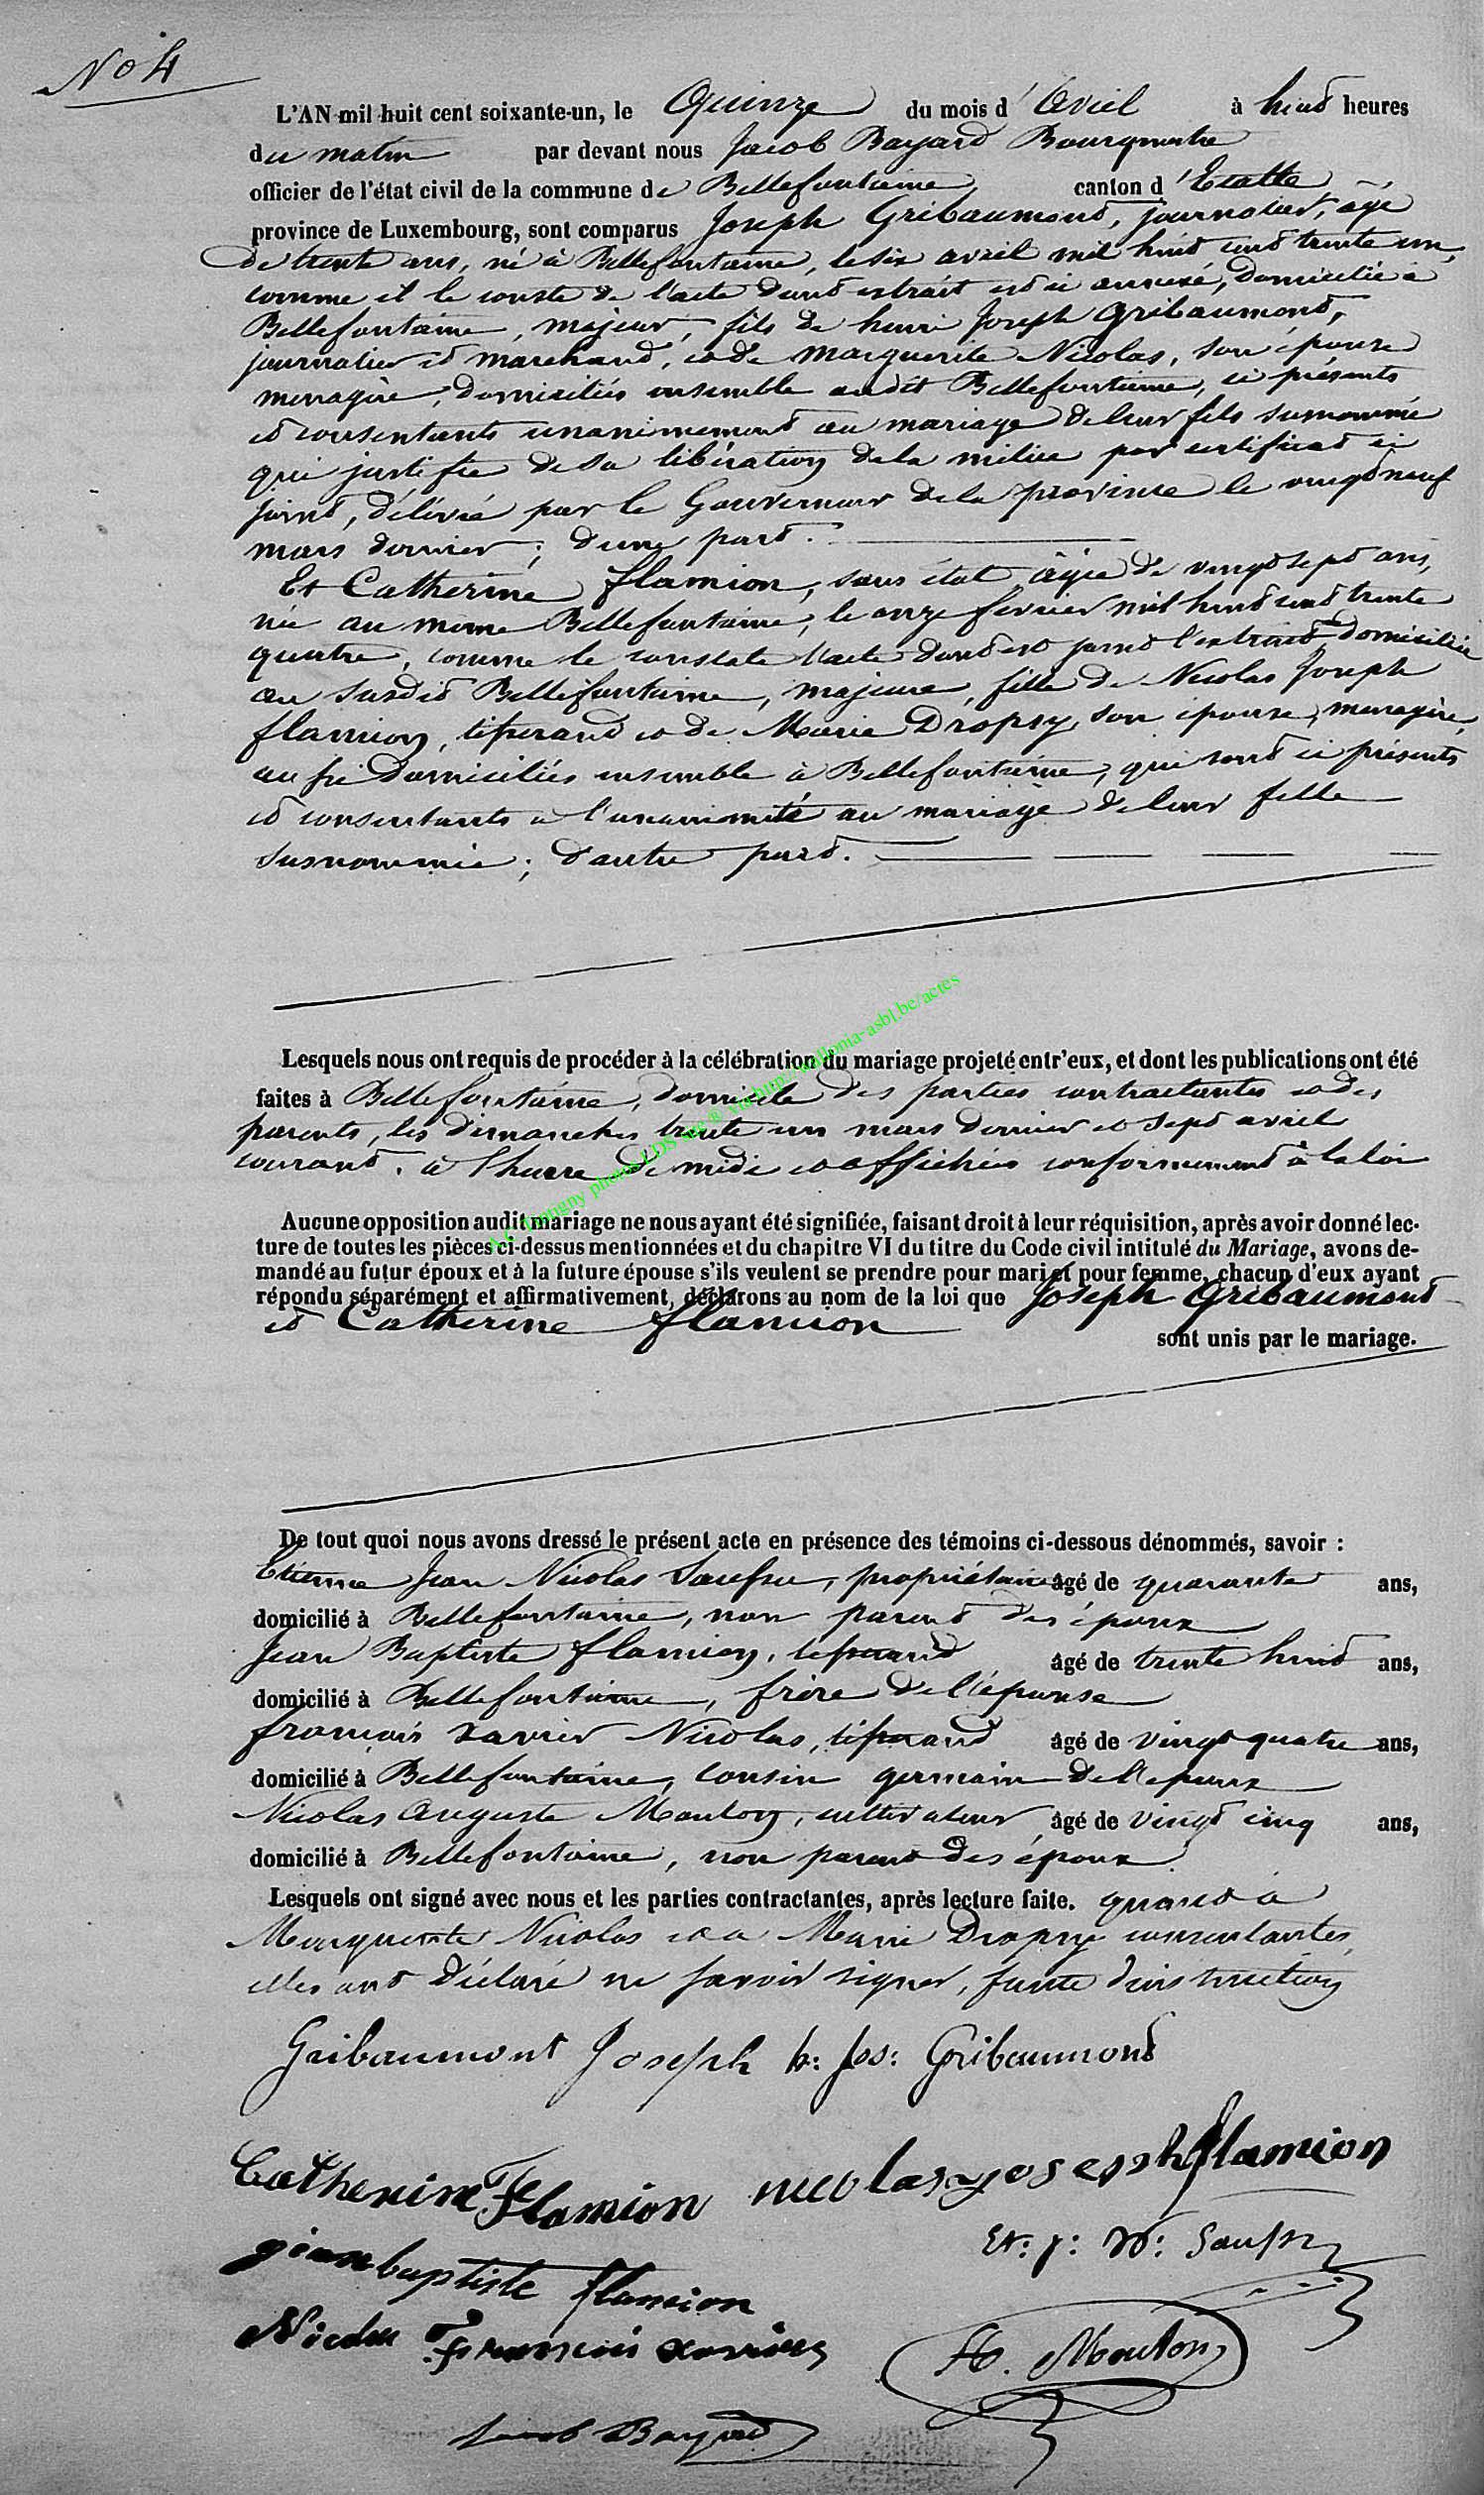 No 4
L'AN mil huit cent soixante-un, le Quinze du mois d'Avril à huit heures
du matin par devant nous Jacob Bayard Bourgmestre
officier de l'état civil de la commune de Bellefontaine, canton d'Etalle
province de Luxembourg, sont comparus Joseph Gribaumont, journalier, âgé
de trente ans, né à Bellefontaine, le six avril mil huit cent trente un,
comme il le conste de l'acte dont extrait est ci annexé, domicilié à
Bellefontaine, majeur, fils de henri Joseph Gribaumont,
journalier et marchand, et de Marguerite Nicolas, son épouse
menagère, domiciliés ensemble audit Bellefontaine, ci présents
et consentants unanimement au mariage de leur fils surnommé
qui justifie de sa libération de la milice par certificat ci
joint, délivré par le Gouverneur de la province le vingt neuf
mars dernier; d'une part.
Et Catherine flamion, sans état, âgée de vingt sept ans,
née au meme Bellefontaine, le onze fevrier mil huit cent trente
quatre, comme le constate l'acte dont est joint l'extrait domiciliée
au susdit Bellefontaine, majeure, fille de Nicolas Joseph
flamion, tisserand et de Marie Dropsy, son épouse, menagère,
aussi domiciliés ensemble à Bellefontaine, qui sont ci présents
et consentants à l'unanimité au mariage de leur fille
susnommée; d'autre part.
Lesquels nous ont requis de procéder à la célébration du mariage projeté entr'eux, et dont les publications ont été
faites à Bellefontaine, domicile des parties contractantes et des
parents, les dimanches trente un mars dernier et sept avril
courant, à l'heure de midi et affichées conformement à la loi
Aucune opposition audit mariage ne nous ayant été signifiée, faisant droit à leur réquisition, après avoir donné lec-
ture de toutes les pièces ci-dessus mentionnées et du chapitre VI du titre du Code civil intitulé du Mariage, avons de-
mandé au futur époux et à la future épouse s'ils veulent se prendre pour mari et pour femme, chacun d'eux ayant
répondu séparément et affirmativement, déclarons au nom de la loi que Joseph Gribaumont
et Catherine flamion sont unis par le mariage.
De tout quoi nous avons dressé le présent acte en présence des témoins ci-dessous dénommés, savoir :
Etienne Jean Nicolas Saussu, propriétaire âgé de quarante ans,
domicilié à Bellefontaine, non parent des époux
Jean Baptiste flamion, tisserand âgé de trente huit ans,
domicilié à Bellefontaine, frère de l'épouse
françois Xavier Nicolas, tisserand âgé de vingt quatre ans,
domicilié à Bellefontaine, cousin germain de l'epoux
Nicolas Auguste Mouton, cultivateur, âgé de vingt cinq ans,
domicilié à Bellefontaine, non parent des époux
Lesquels ont signé avec nous et les parties contractantes, après lecture faite. quant à
Marguerite Nicolas et à Marie Dropsy consentantes,
elles ont déclaré ne savoir signer, faute d'instruction
Gribaumont Joseph h: Jos: Gribaumont
Catherine Flamion nicolas josepsh flamion
Et: j: N: Saussu
jean baptiste flamion
Nicolas François Xavier
A. Mouton
Jacob Bayard